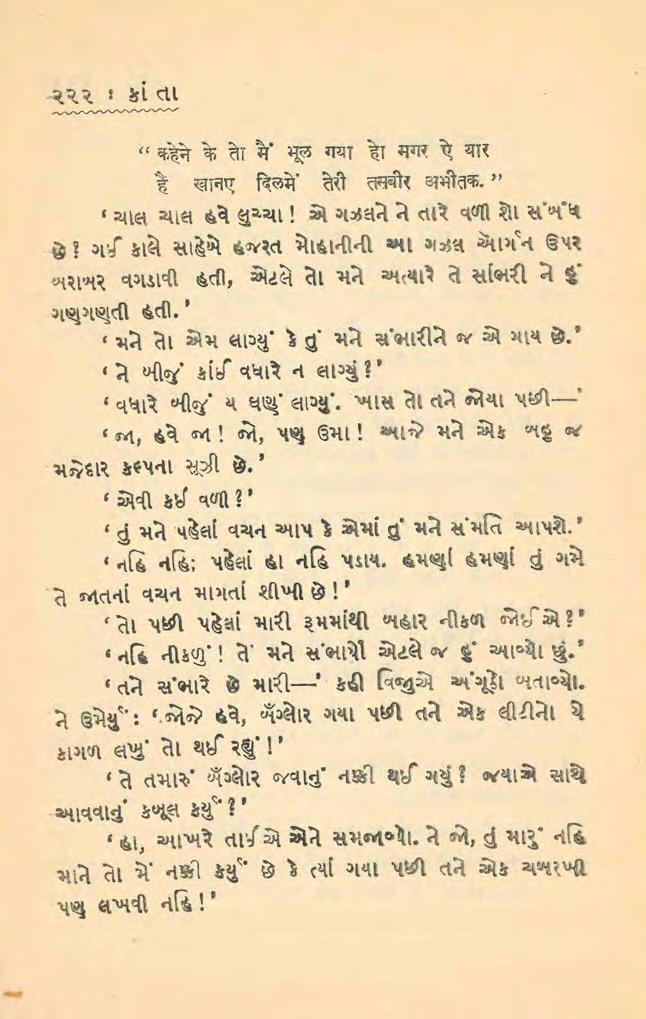 ૨૨૨ : કાંતા
“ कहेने के तो मैं भूल गया हो मगर ऐ यार
है खानए दिलमें तेरी तसबीर अभीतक. ”
‘ ચાલ ચાલ હવે લુચ્ચા! એ ગઝલને ને તારે વળી શો સંબંધ
છે? ગઈ કાલે સાહેબે હજરત મોહાનીની આ ગઝલ ઑર્ગન ઉપર
બરાબર વગડાવી હતી, એટલે તો મને અત્યારે તે સાંભરી ને હું
ગણગણતી હતી.’
‘ મને તો એમ લાગ્યું કે તું મને સંભારીને જ એ ગાય છે.’
‘ ને બીજું કાંઈ વધારે ન લાગ્યું?’
‘ વધારે બીજું ય ઘણું લાગ્યું. ખાસ તો તને જોયા પછી—’
‘ જા, હવે જા! જો, પણ ઉમા! આજે મને એક બહુ જ
મજેદાર કલ્પના સૂઝી છે.’
‘ એવી કઈ વળી?’
‘ તું મને પહેલાં વચન આપ કે એમાં તું મને સંમતિ આપશે.’
‘ નહિ નહિ; પહેલાં હા નહિ પડાય. હમણાં હમણાં તું ગમે
તે જાતનાં વચન માગતાં શીખી છે!’
‘ તો પછી પહેલાં મારી રૂમમાંથી બહાર નીકળ જોઈએ?’
‘ નહિ નીકળું! તેં મને સંભાર્યો એટલે જ હું આવ્યો છું.’
‘ તને સંભારે છે મારી—’ કહી વિજુએ અંગૂઠો બતાવ્યો.
ને ઉમેર્યું: ‘ જોજે હવે, બેંગ્લોર ગયા પછી તને એક લીટીનો યે
કાગળ લખું તો થઈ રહ્યું!’
‘ તે તમારું બેંગ્લોર જવાનું નક્કી થઈ ગયું? જયાએ સાથે
આવવાનું કબૂલ કર્યું?’
‘ હા, આખરે તાઈએ એને સમજાવ્યો. ને જો, તું મારું નહિ
માને તો મેં નક્કી કર્યું છે કે ત્યાં ગયા પછી તને એક ચબરખી
પણ લખવી નહિ!’